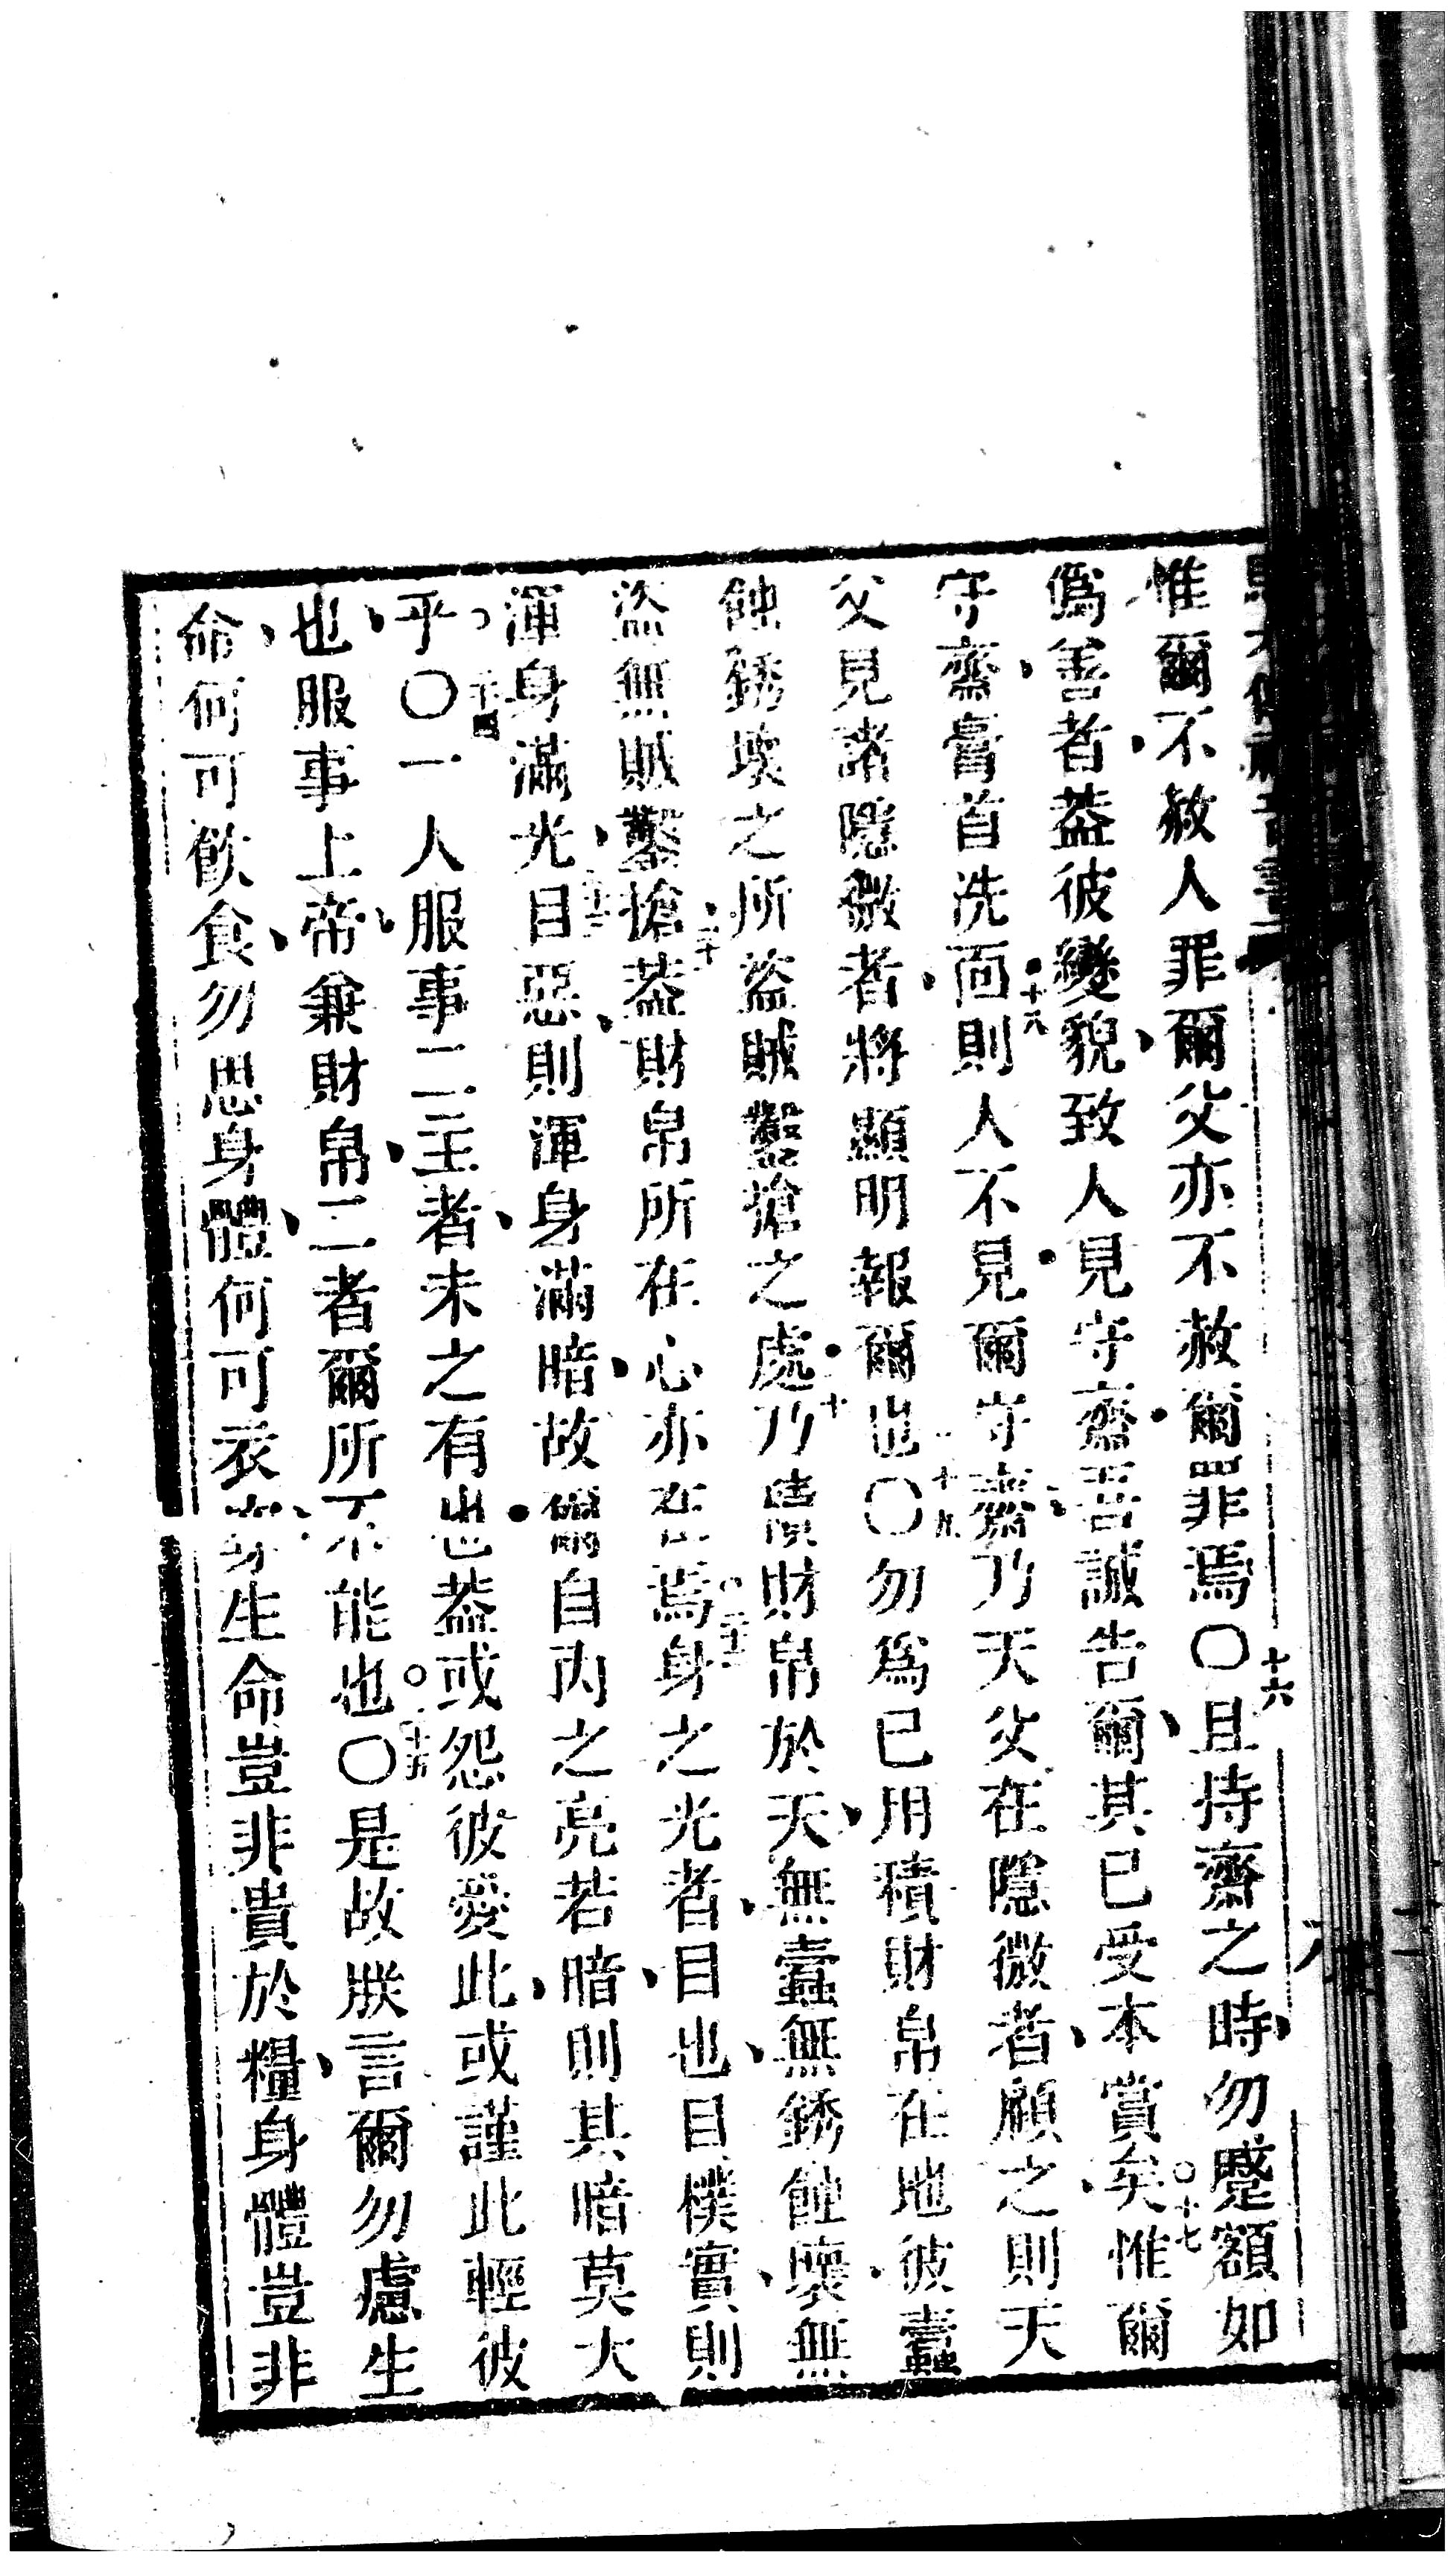 惟爾不赦人罪爾父亦不赦爾罪焉〇十六且持齋之時勿蹙額如
僞善者葢彼變貌致人見守齋吾誠告爾其已受本賞矣十七惟爾
守齋膏首洗面十八則人不見爾守齋乃天父在隱微者顧之則天
父見諸隱微者將顯明報爾也〇十九勿爲己用積財帛在地彼蠹
蝕銹壞之所盜賊鑿搶之處二十乃積財帛於天無蠹無銹蝕壞無
盜無賊鑿搶二十一葢財帛所在心亦在焉二十二身之光者目也目樸實則
渾身滿光二十三目惡則渾身滿暗故爾自內之亮若暗則其暗莫大
乎〇二十四一人服事二主者未之有也葢或怨彼愛此或謹此輕彼
也服事上帝兼財帛二者爾所不能也〇二十五是故朕言爾勿慮生
命何可飲食勿思身體何可衣穿生命豈非貴於糧身體豈非